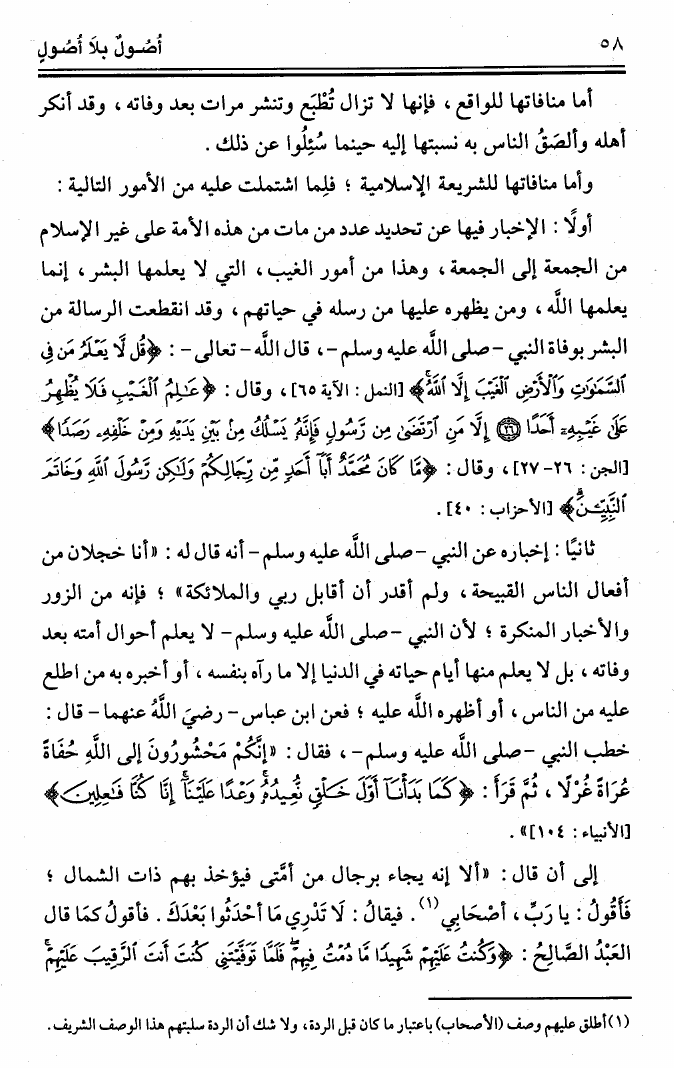 ٥٨ أُصُولٌ بِلَا أُصُولٍ
أما منافاتها للواقع ، فإنها لا تزال تُطْبَع وتنشر مرات بعد وفاته ، وقد أنكر
أهله وألصَقُ الناس به نسبتها إليه حينما سُئِلُوا عن ذلك .
وأما منافاتها للشريعة الإسلامية ؛ فلِما اشتملت عليه من الأمور التالية :
أولًا : الإخبار فيها عن تحديد عدد من مات من هذه الأمة على غير الإسلام
من الجمعة إلى الجمعة ، وهذا من أمور الغيب ، التي لا يعلمها البشر ، إنما
يعلمها اللَّه ، ومن يظهره عليها من رسله في حياتهم ، وقد انقطعت الرسالة من
البشر بوفاة النبي -صلى اللَّه عليه وسلم- ، قال اللَّه -تعالى- : ﴿قُل لَّا يَعْلَمُ مَن فِى
ٱلسَّمَٰوَٰتِ وَٱلْأَرْضِ ٱلْغَيْبَ إِلَّا ٱللَّهُ﴾ [النمل : الآية ٦٥] ، وقال : ﴿عَٰلِمُ ٱلْغَيْبِ فَلَا يُظْهِرُ
عَلَىٰ غَيْبِهِۦٓ أَحَدًا ۝٢٦ إِلَّا مَنِ ٱرْتَضَىٰ مِن رَّسُولٍ فَإِنَّهُۥ يَسْلُكُ مِنۢ بَيْنِ يَدَيْهِ وَمِنْ خَلْفِهِۦ رَصَدًا﴾
[الجن : ٢٦-٢٧] ، وقال : ﴿مَّا كَانَ مُحَمَّدٌ أَبَآ أَحَدٍ مِّن رِّجَالِكُمْ وَلَٰكِن رَّسُولَ ٱللَّهِ وَخَاتَمَ
ٱلنَّبِيِّۦنَ﴾ [الأحزاب : ٤٠] .
ثانيًا : إخباره عن النبي -صلى اللَّه عليه وسلم- أنه قال له : «أنا خجلان من
أفعال الناس القبيحة ، ولم أقدر أن أقابل ربي والملائكة» ؛ فإنه من الزور
والأخبار المنكرة ؛ لأن النبي -صلى اللَّه عليه وسلم- لا يعلم أحوال أمته بعد
وفاته ، بل لا يعلم منها أيام حياته في الدنيا إلا ما رآه بنفسه ، أو أخبره به من اطلع
عليه من الناس ، أو أظهره اللَّه عليه ؛ فعن ابن عباس -رضيَ اللَّهُ عنهما- قال :
خطب النبي -صلى اللَّه عليه وسلم- ، فقال : «إنَّكُمْ مَحْشُورُونَ إلى اللَّهِ حُفَاةً
عُرَاةً غُرْلًا ، ثُمَّ قَرَأَ : ﴿كَمَا بَدَأْنَآ أَوَّلَ خَلْقٍ نُّعِيدُهُۥ وَعْدًا عَلَيْنَآ إِنَّا كُنَّا فَٰعِلِينَ﴾
[الأنبياء : ١٠٤]» .
إلى أن قال : «ألا إنه يجاء برجال من أمَّتى فيؤخذ بهم ذات الشمال ؛
فَأَقُولُ : يا رَبِّ ، أصْحَابِي(١) . فيقالُ : لَا تَدْرِي مَا أحْدَثُوا بَعْدَكَ . فأقولُ كمَا قال
العَبْدُ الصَّالِحُ : ﴿وَكُنتُ عَلَيْهِمْ شَهِيدًا مَّا دُمْتُ فِيهِمْ فَلَمَّا تَوَفَّيْتَنِى كُنتَ أَنتَ ٱلرَّقِيبَ عَلَيْهِمْ
(١) أطلق عليهم وصف (الأصحاب) باعتبار ما كان قبل الردة ، ولا شك أن الردة سلبتهم هذا الوصف الشريف .